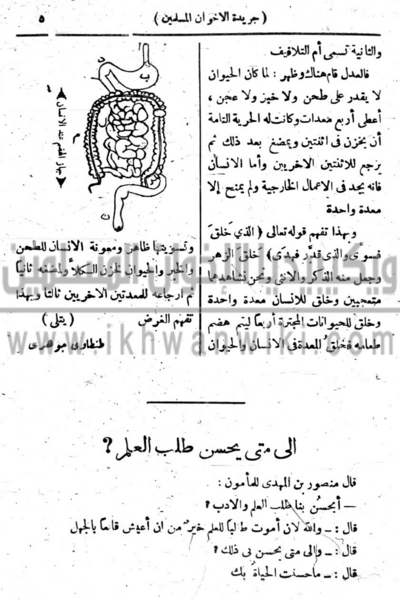 ( جريدة الاخوان المسلمين )
٥
والثانية تسمى أم التلافيف
فالعدل قام هناك وظهر : لما كان الحيوان
لا يقدر على طحن ولا خبز ولا عجن ،
أعطى أربع معدات وكانت له الحرية التامة
أن يخزن فى اثنتين ويمضغ بعد ذلك ثم
يرجع للاثنتين الاخريين وأما الانسان
فانه يجد فى الاعمال الخارجية ولم يمنح إلا
معدة واحدة
وبهذا تفهم قوله تعالى ( الذي خلق
فسوى والذى قدَّر فهدى ) خلق الزهر
وجعل منه الذكر والانثى ونحن نشاهدهما
متعجبين وخلق للانسان معدة واحدة
وخلق للحيوانات المجترة أربعا ليتم هضم
طعامه فخلقُ المعدة فى الانسان والحيوان
جهاز الهضم عند الانسان
وتسويتها ظاهر ومعونة الانسان للطحن
والخبز والحيوان لخزن الكلأ ولمضغه ثانيا
ثم ارجاعه للمعدتين الاخريين ثالثا وبهذا
تفهم الغرض ( يتلى )
طنطاوى جوهرى
ويكيبيديا الإخوان المسلمون
www.ikhwanwiki.com
الى متى يحسن طلب العلم ؟
قال منصور بن المهدى للمأمون :
— أيحسُن بنا طلب العلم والادب ؟
قال : — والله لان أموت طالبا للعلم خير من ان أعيش قانعا بالجهل
قال : — والى متى يحسن بى ذلك ؟
قال : — ماحسنت الحياة بك